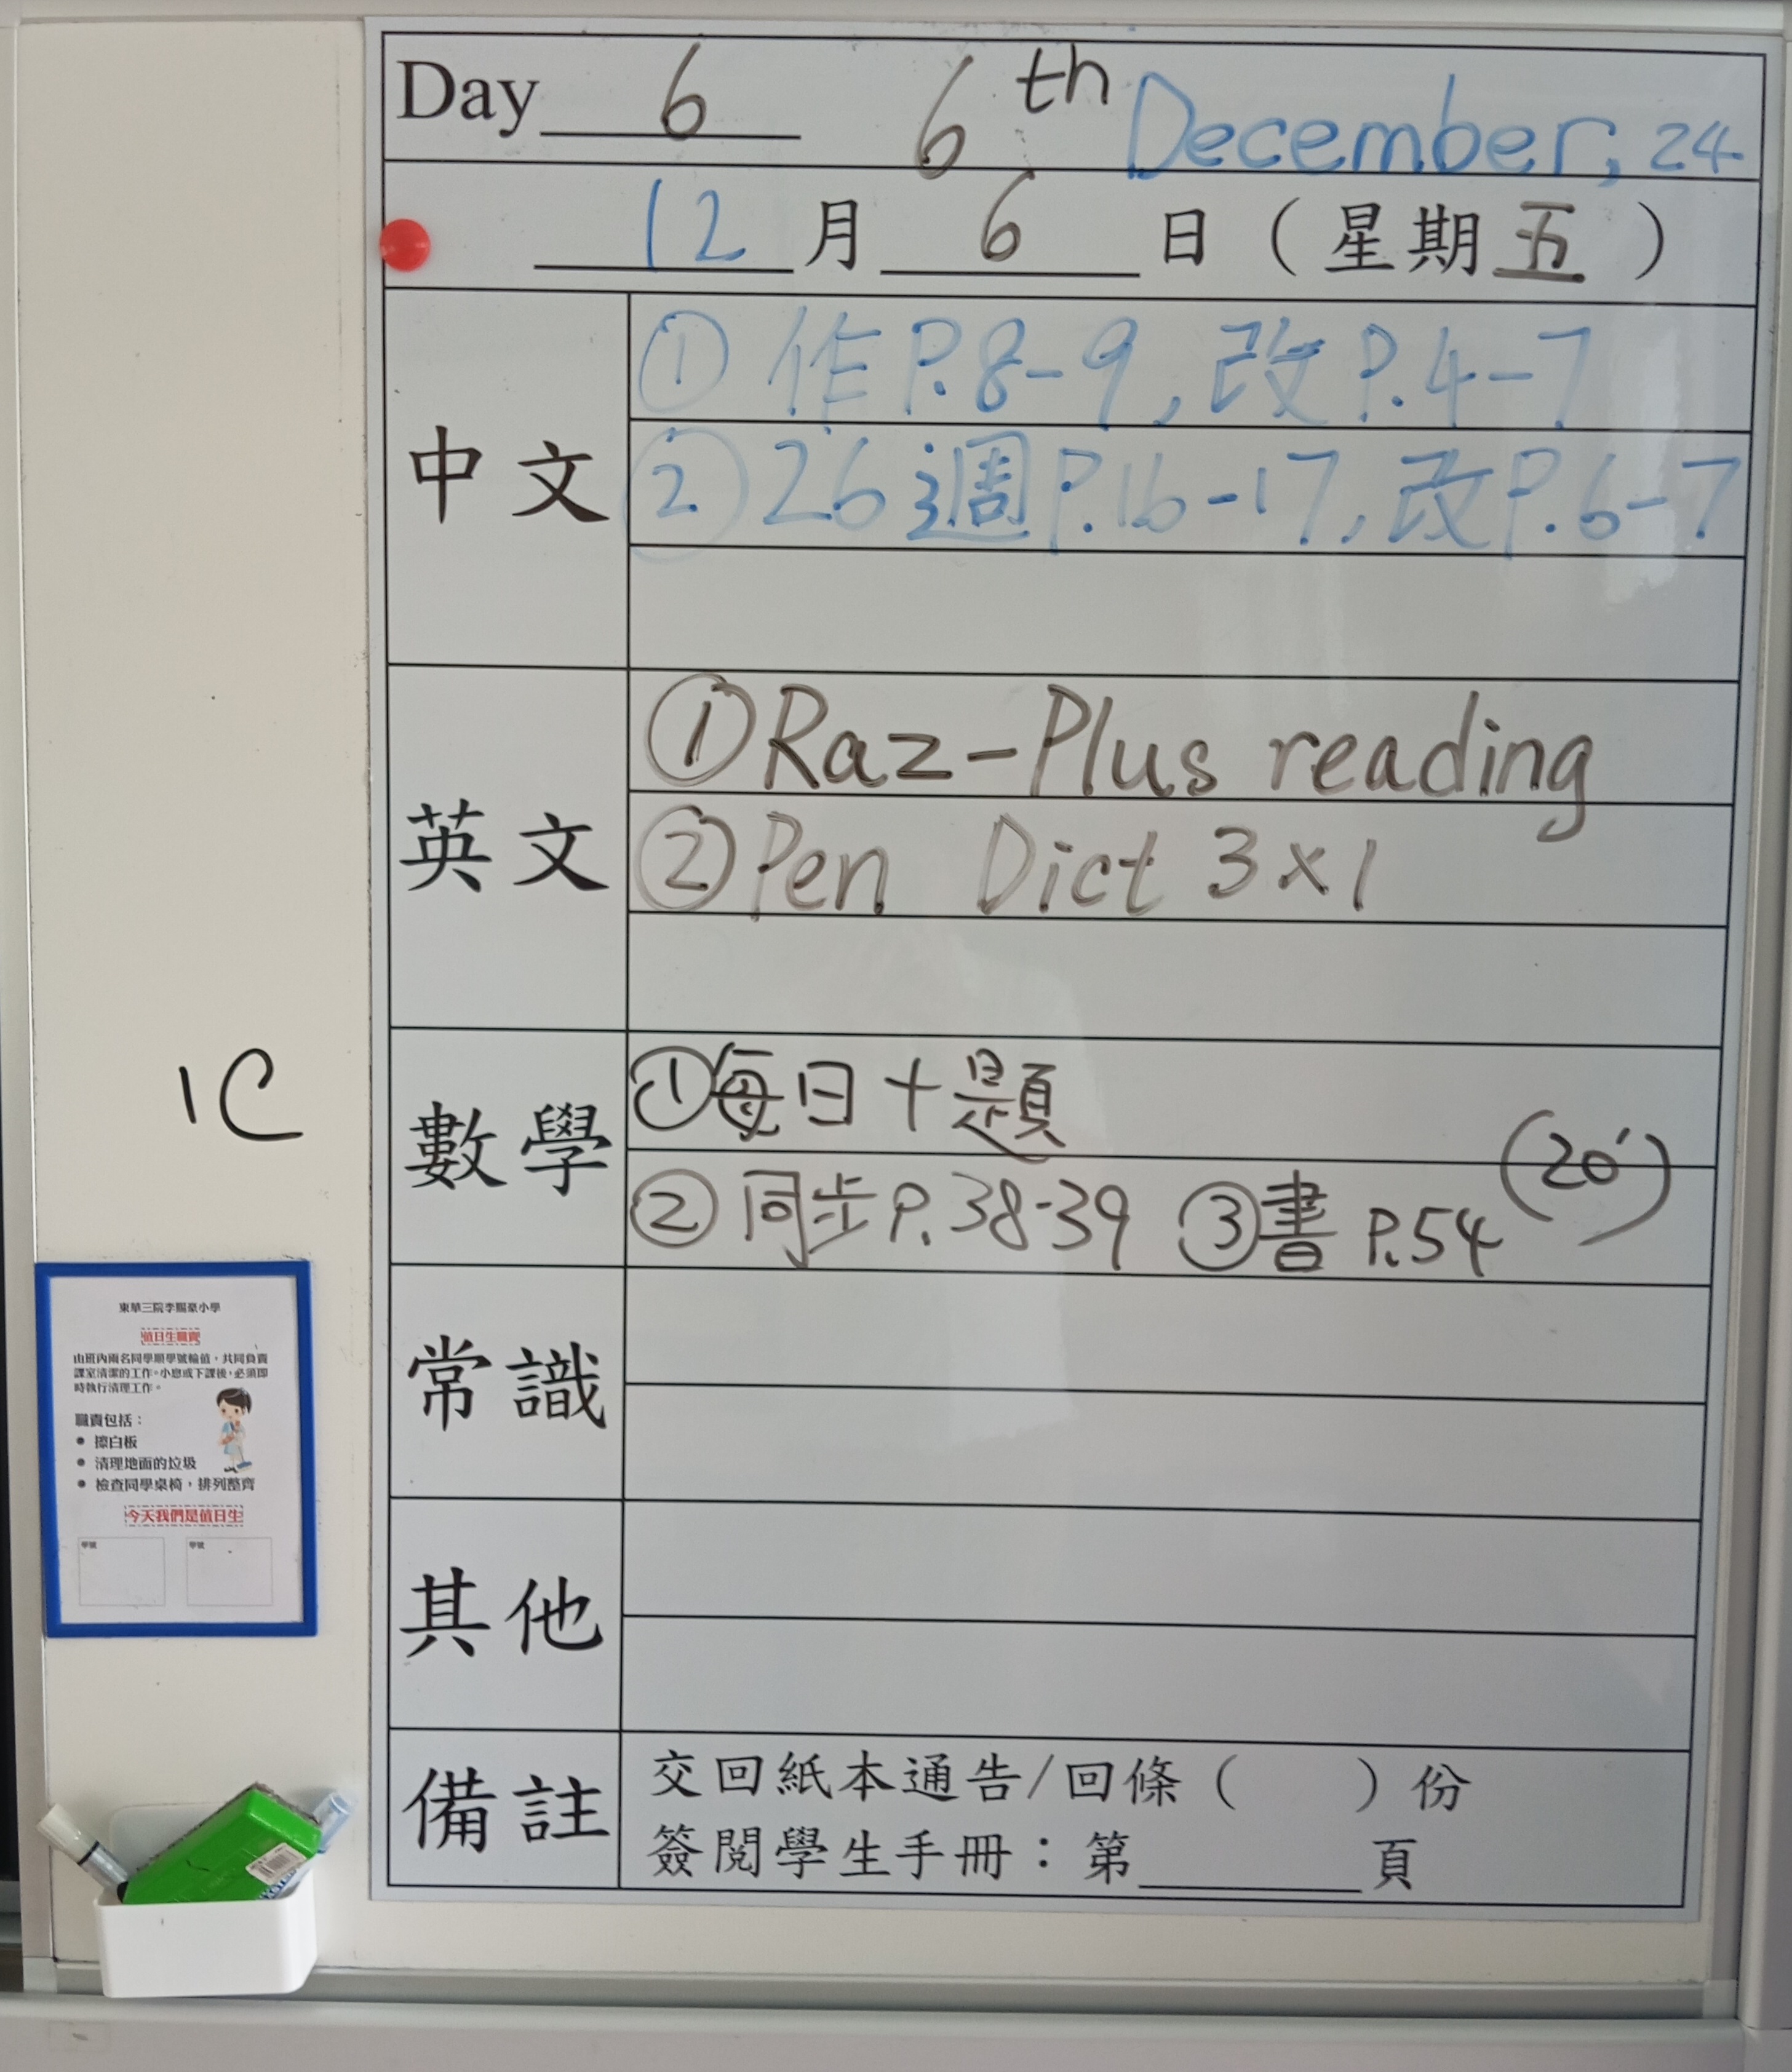 Day 6 6th December, 24
12月6日(星期五)
中文
① 作P.8-9,改P.4-7
② 26週P.16-17,改P.6-7
英文
①Raz-Plus reading
②Pen Dict 3×1
數學
①每日十題
② 同步P.38-39 ③書 P.54 (20')
常識
其他
備註
交回紙本通告/回條( )份
簽閱學生手冊:第______頁
1C
東華三院李賜豪小學
值日生職責
由班內兩名同學順學號輪值,共同負責
課室清潔的工作。小息或下課後,必須即
時執行清理工作。
職責包括:
• 擦白板
• 清理地面的垃圾
• 檢查同學桌椅,排列整齊
今天我們是值日生
學號 學號